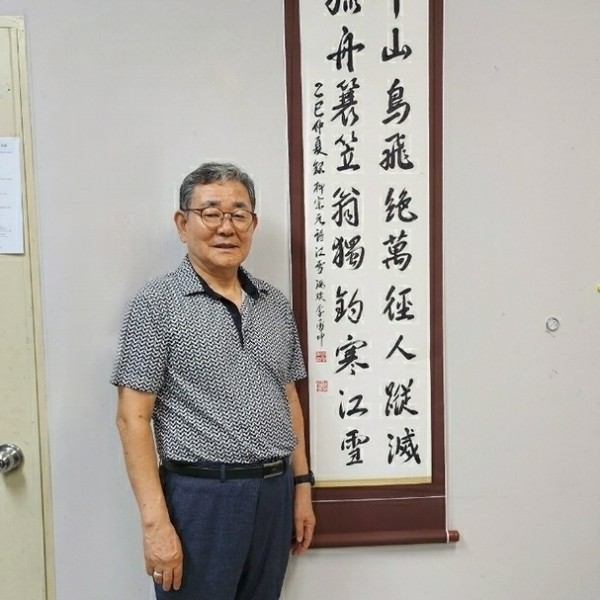 千山鳥飛絕萬徑人蹤滅
孤舟簑笠翁獨釣寒江雪
乙巳仲夏錄柳宗元詩江雪